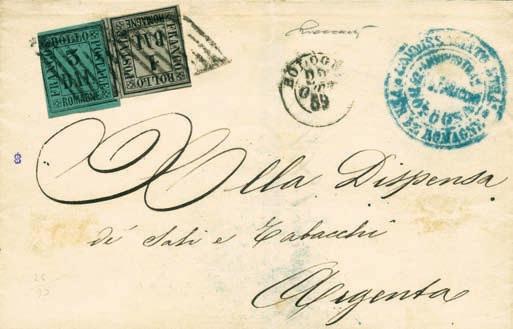 FRANCO BOLLO POSTALE
3
BAI
ROMAGNE
FRANCO BOLLO POSTALE
1
BAI
ROMAGNE
BOLOGNA
59
ROMAGNE
Alla Dispensa
de' Sali e Tabacchi
Argenta